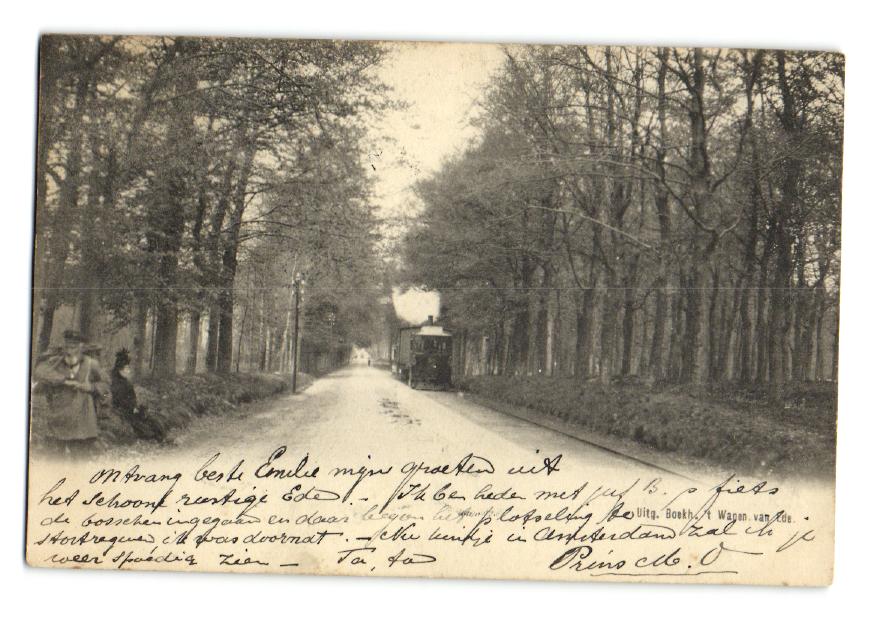 Ontvang beste Emilie mijne groeten uit
het schoone rustige Ede – Ik ben heden met juf B. p. fiets
de bosschen ingegaan en daar begon het plotseling te
stortregenen ik was doornat. – Nu eindje in Amsterdam zal ik je
weer spoedig zien – Ta, ta Prins M. O
Uitg. Boekh. 't Wapen van Ede.